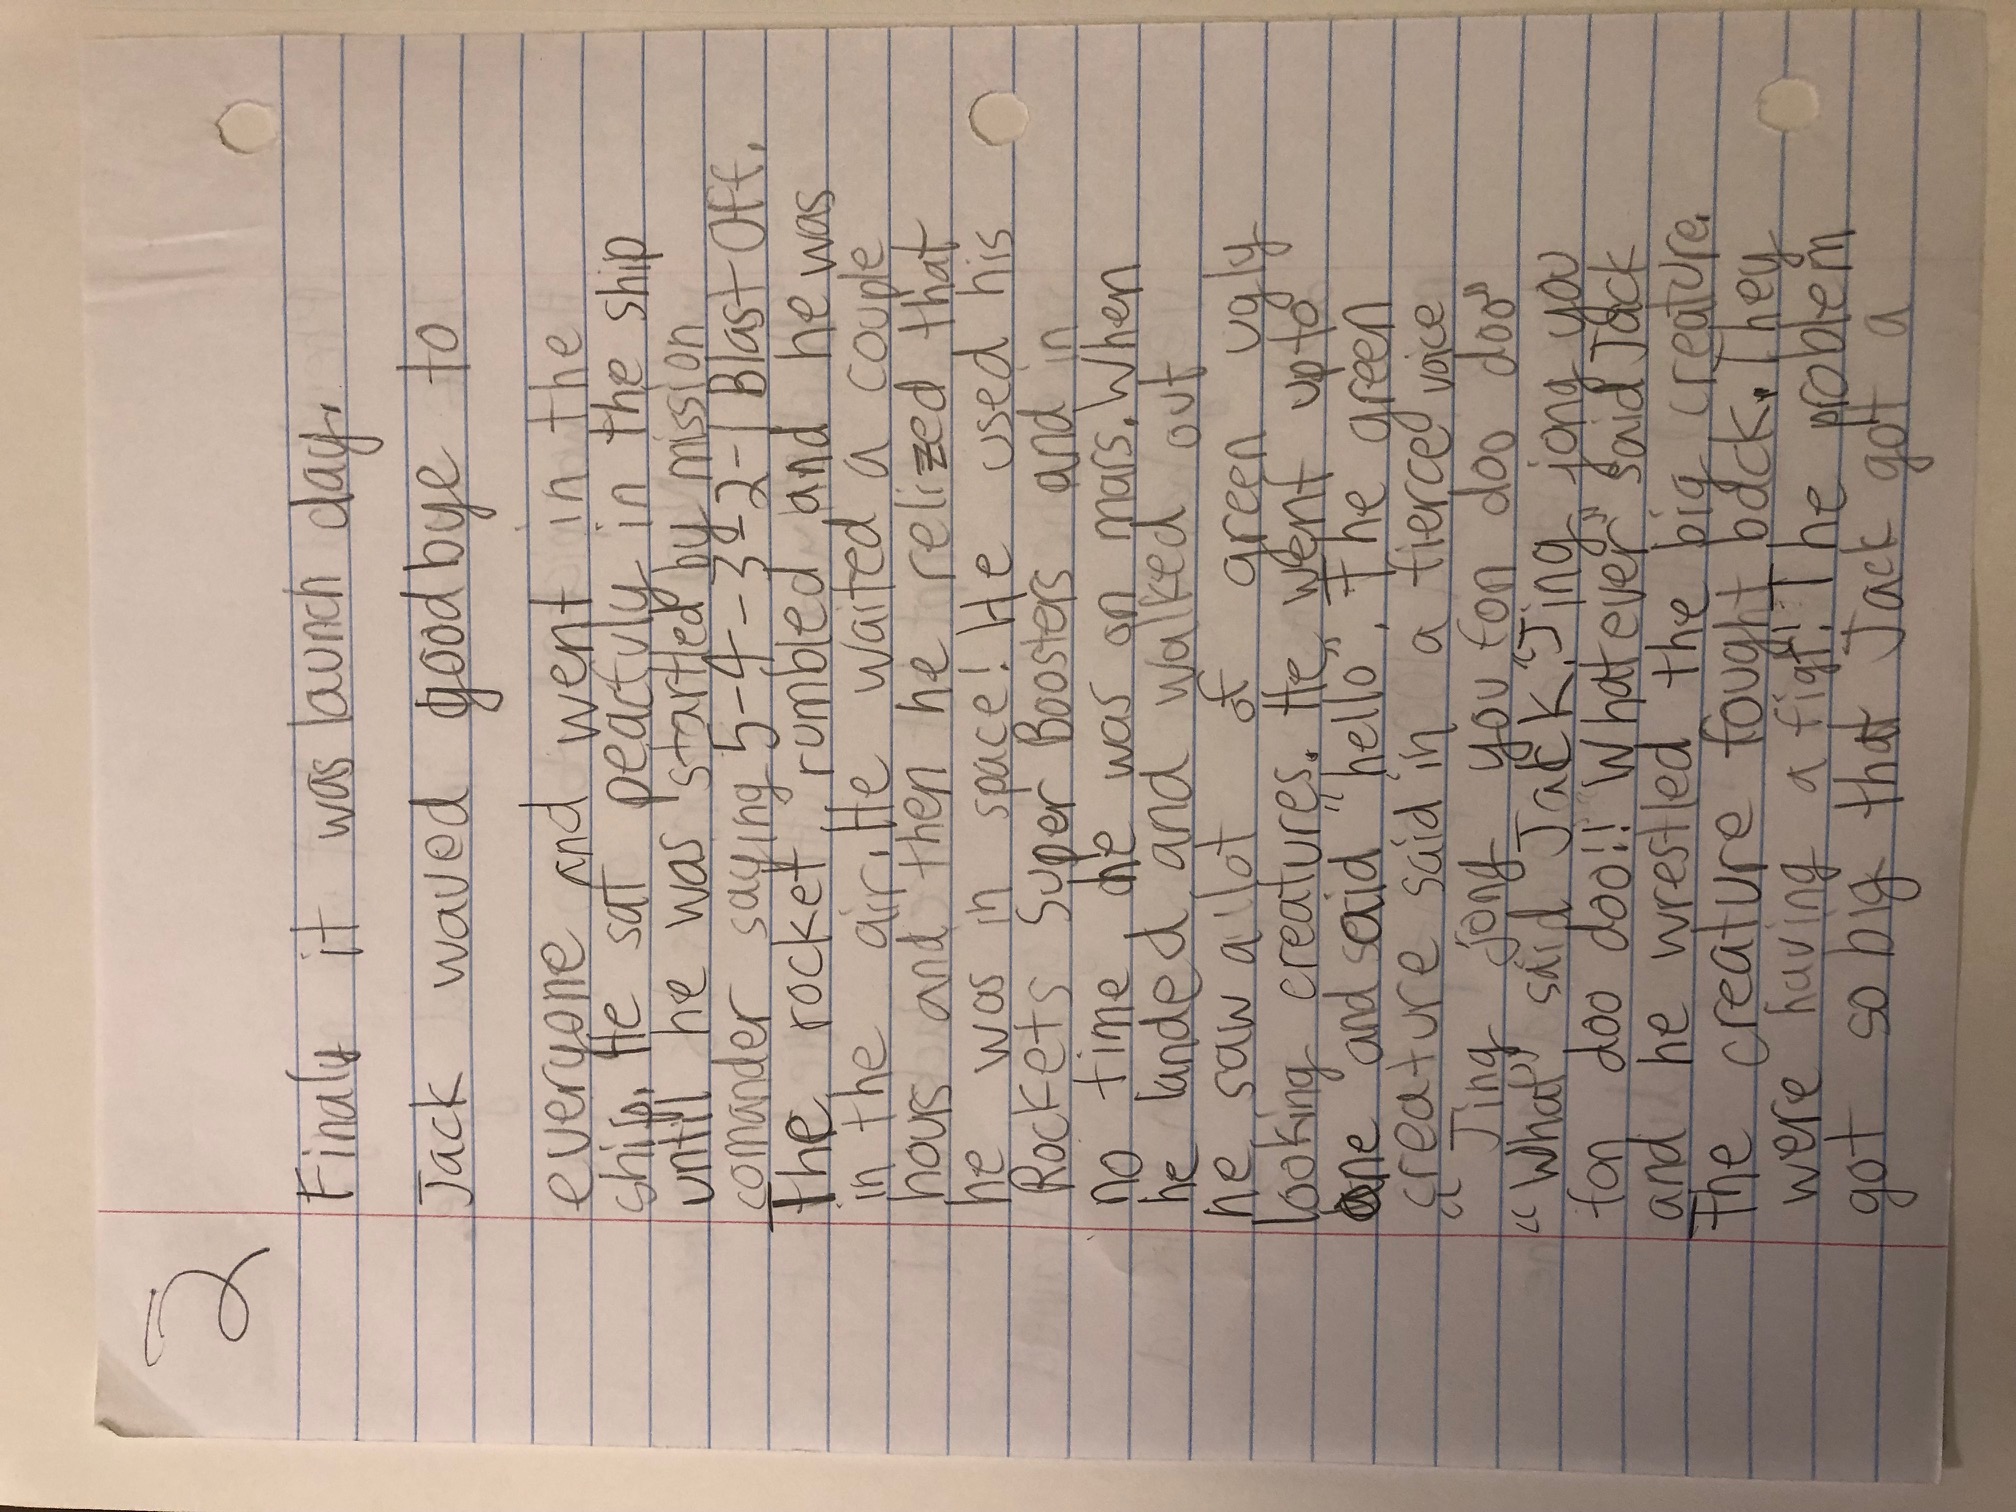 2
Finaly it was launch day.
Jack waved goodbye to
everyone and went in the
ship. He sat peacfuly in the ship
until he was startled by mission
comander saying 5-4-3-2-1 Blast Off.
The rocket rumbled and he was
in the air. He waited a couple
hours and then he relized that
he was in space! He used his
Rockets Super Boosters and in
no time he was on mars. When
he landed and walked out
he saw a lot of green ugly
looking creatures. He went up to
one and said "hello". The green
creature said in a fierce voice
"Jing jong you fon doo doo"
"What" said Jack. "Jing jong you
fon doo doo!! "Whatever" said Jack
and he wrestled the big creature.
The creature fought back. They
were having a figt! The problem
got so big that Jack got a